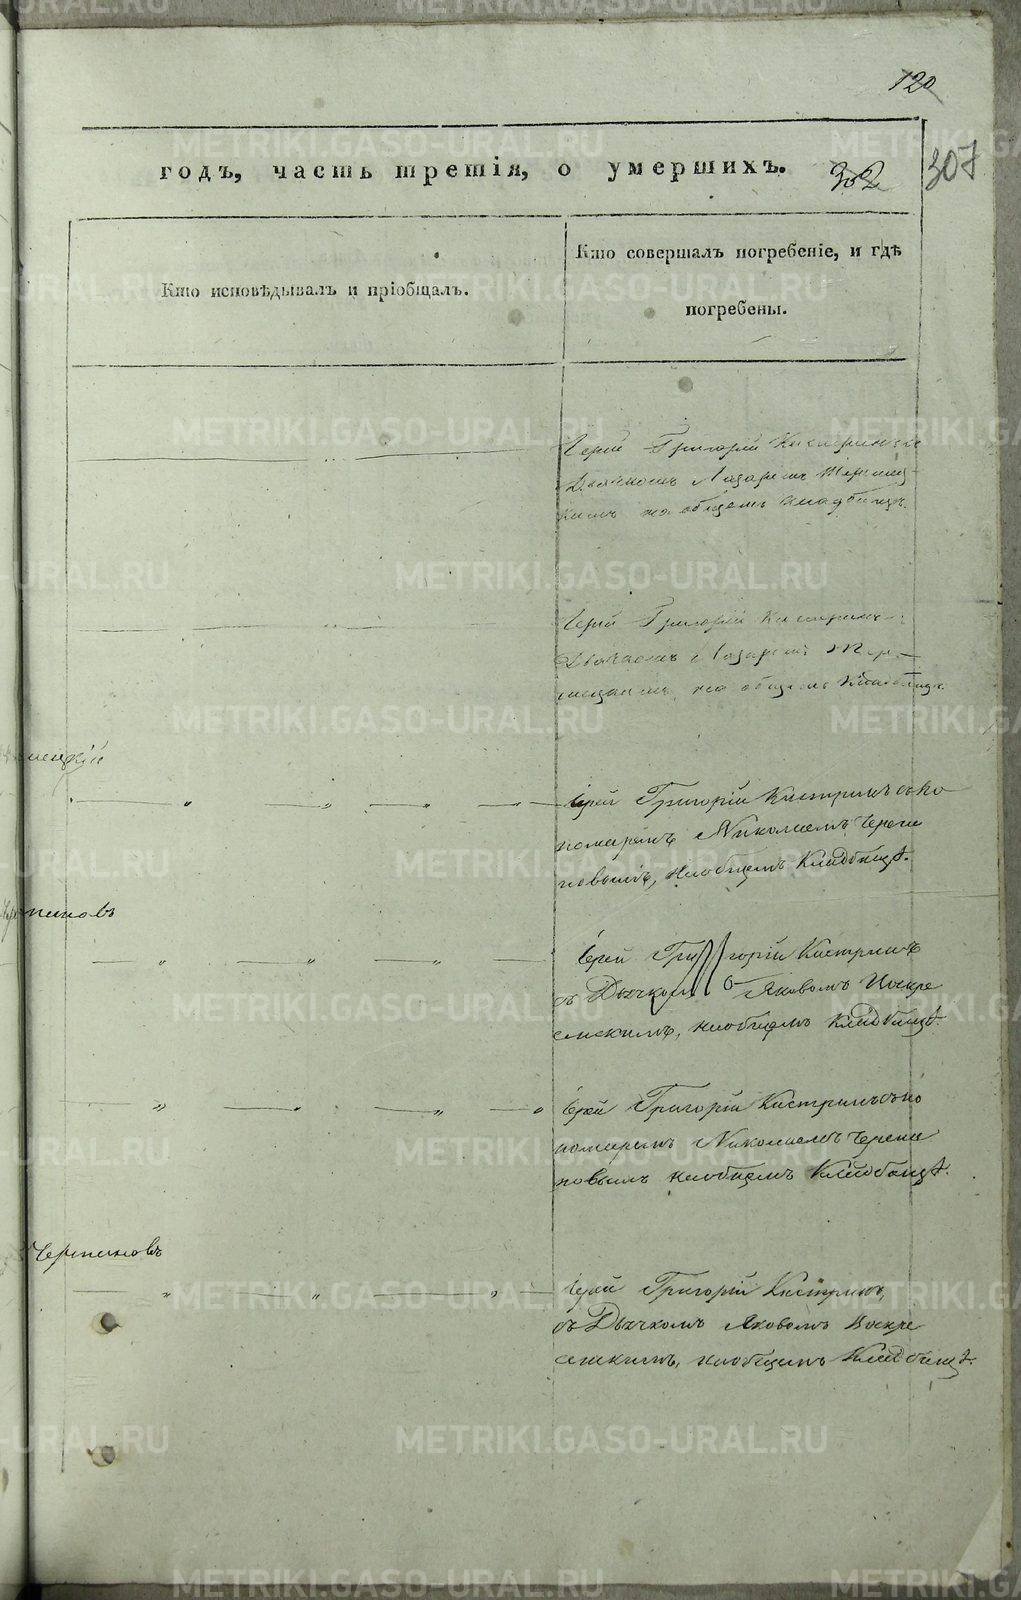 120
годъ, часть третія, о умершихъ.
302
307
Кто исповѣдывалъ и пріобщалъ.
Кто совершалъ погребеніе, и гдѣ
погребены.
Іерей Григорій
Дьячкомъ Лазаремъ
кимъ на общемъ кладбищѣ.
Іерей Григорій Кастринъ
Дьячкомъ Лазаремъ
на общемъ кладбищѣ.
Іерей Григорій Кастринъ съ по
номаремъ Николаемъ Черепа
новымъ, на общемъ Кладбищѣ.
Іерей Григорій Кастринъ
съ Дьячкомъ Яковомъ Воскре
сенскимъ, на общемъ Кладбищѣ.
Іерей Григорій Кастринъ съ по
номаремъ Николаемъ Черепа
новымъ на общемъ Кладбищѣ.
Іерей Григорій Кастринъ
съ Дьячкомъ Яковомъ Воскре
сенскимъ, на общемъ Кладбищѣ.
METRIKI.GASO-URAL.RU